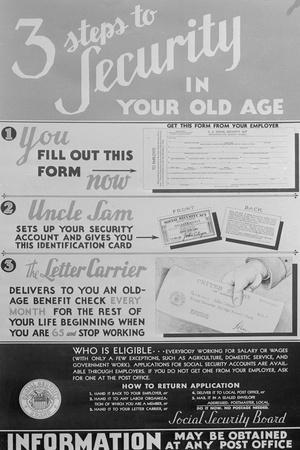 3 steps to
Security
IN
YOUR OLD AGE
GET THIS FORM FROM YOUR EMPLOYER
1 You
FILL OUT THIS
FORM now
2 Uncle Sam
SETS UP YOUR SECURITY
ACCOUNT AND GIVES YOU
THIS IDENTIFICATION CARD
FRONT BACK
3 The Letter Carrier
DELIVERS TO YOU AN OLD-
AGE BENEFIT CHECK EVERY
MONTH FOR THE REST OF
YOUR LIFE BEGINNING WHEN
YOU ARE 65 AND STOP WORKING
WHO IS ELIGIBLE··· EVERYBODY WORKING FOR SALARY OR WAGES
(WITH ONLY A FEW EXCEPTIONS, SUCH AS AGRICULTURE, DOMESTIC SERVICE, AND
GOVERNMENT WORK). APPLICATIONS FOR SOCIAL SECURITY ACCOUNTS ARE AVAIL-
ABLE THROUGH EMPLOYERS. IF YOU DO NOT GET ONE FROM YOUR EMPLOYER, ASK
FOR ONE AT THE POST OFFICE.
HOW TO RETURN APPLICATION
1. HAND IT BACK TO YOUR EMPLOYER, or
2. HAND IT TO ANY LABOR ORGANIZA-
TION OF WHICH YOU ARE A MEMBER, or
3. HAND IT TO YOUR LETTER CARRIER, or
4. DELIVER IT TO LOCAL POST OFFICE, or
5. MAIL IT IN A SEALED ENVELOPE
ADDRESSED: POSTMASTER, LOCAL
DO IT NOW. NO POSTAGE NEEDED.
Social Security Board
INFORMATION MAY BE OBTAINED
AT ANY POST OFFICE